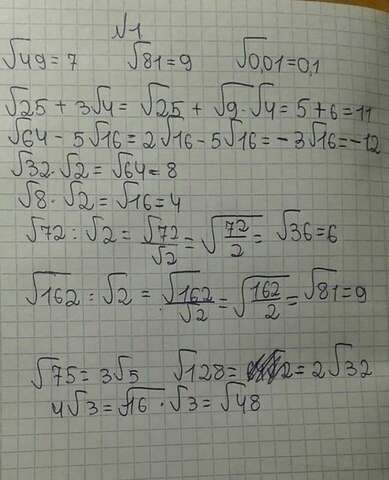 √1
√49=7 √81=9 √0,01=0,1
√25 + 3√4= √25 + √9·√4=5+6=11
√64 - 5√16=2√16-5√16=-3√16=-12
√32·√2=√64=8
√8·√2=√16=4
√72:√2=√72/√2=√72/2= √36=6
√162:√2=√162/√2=√162/2=√81=9
√75=3√5 √128= =2√32
4√3=√16·√3=√48